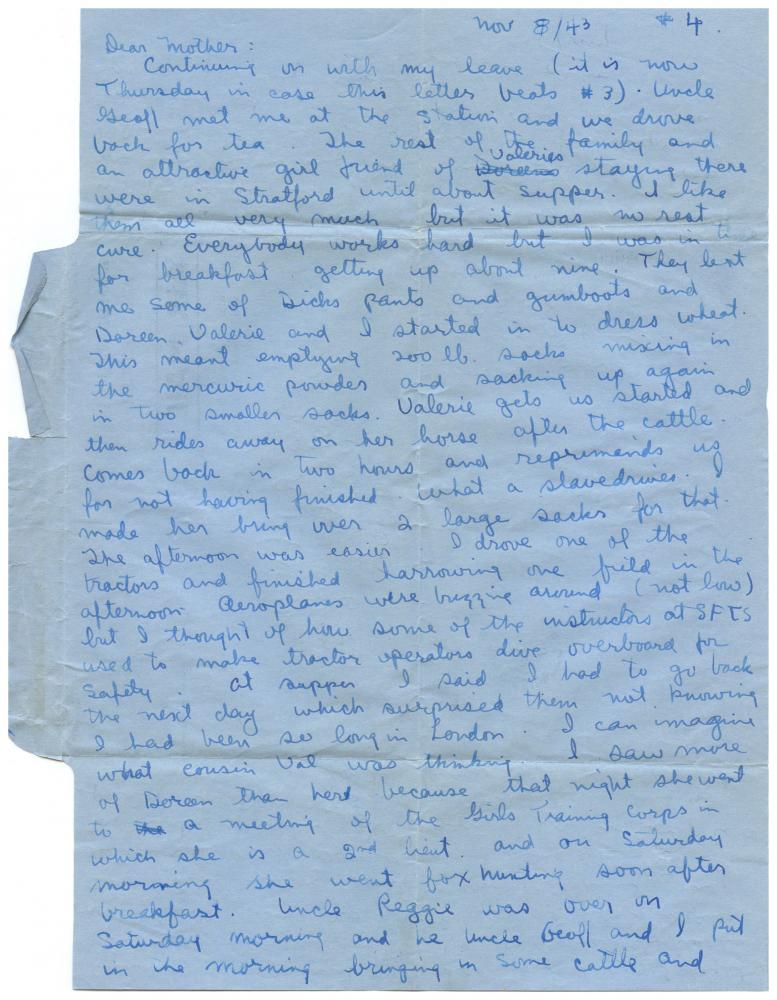 Nov 8/43 # 4.
Dear Mother:
Continuing on with my leave (it is now
Thursday in case this letter beats #3). Uncle
Geoff met me at the station and we drove
back for tea. The rest of the family and
Valeries
an attractive girl friend of Doreens staying there
were in Stratford until about supper. I like
them all very much but it was no rest
cure. Everybody works hard but I was in
for breakfast getting up about nine. They lent
me some of Dicks pants and gumboots and
Doreen, Valerie and I started in to dress wheat.
This meant emptying 200 lb. sacks mixing in
the mercuric powder and sacking up again
in two smaller sacks. Valerie gets us started and
then rides away on her horse after the cattle.
Comes back in two hours and reprimends us
for not having finished. What a slavedriver. I
made her bring over 2 large sacks for that.
The afternoon was easier. I drove one of the
tractors and finished harrowing one field in the
afternoon. Aeroplanes were buzzing around (not low)
but I thought of how some of the instructors at SFTS
used to make tractor operators dive overboard for
safety. At supper I said I had to go back
the next day which surprised them not knowing
I had been so long in London. I can imagine
what cousin Val was thinking. I saw more
of Doreen than her because that night she went
to the a meeting of the Girls Training Corps in
which she is a 2nd lieut. and on Saturday
morning she went fox hunting soon after
breakfast. Uncle Reggie was over on
Saturday morning and he Uncle Geoff and I put
in the morning bringing in some cattle and